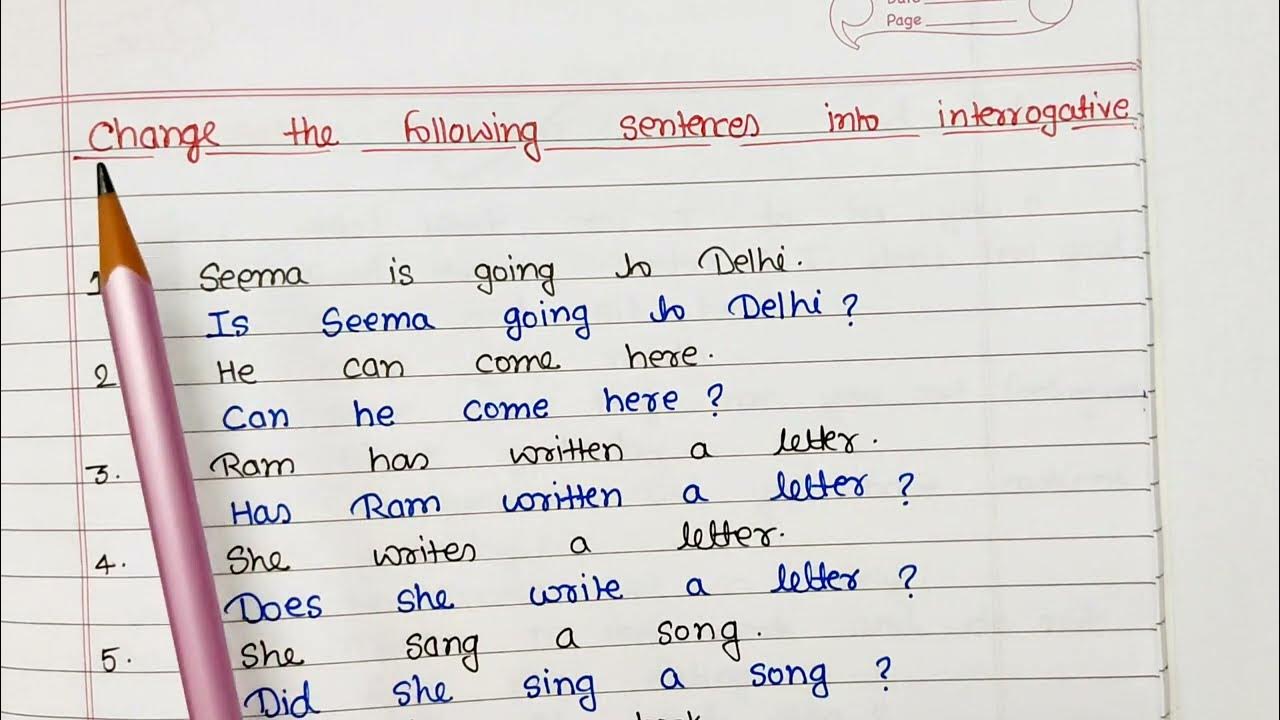 Page
Change the following sentences into interrogative.
1 Seema is going to Delhi.
Is Seema going to Delhi ?
2 He can come here.
Can he come here ?
3. Ram has written a letter.
Has Ram written a letter ?
4. She writes a letter.
Does she write a letter ?
5. She sang a song.
Did she sing a song ?